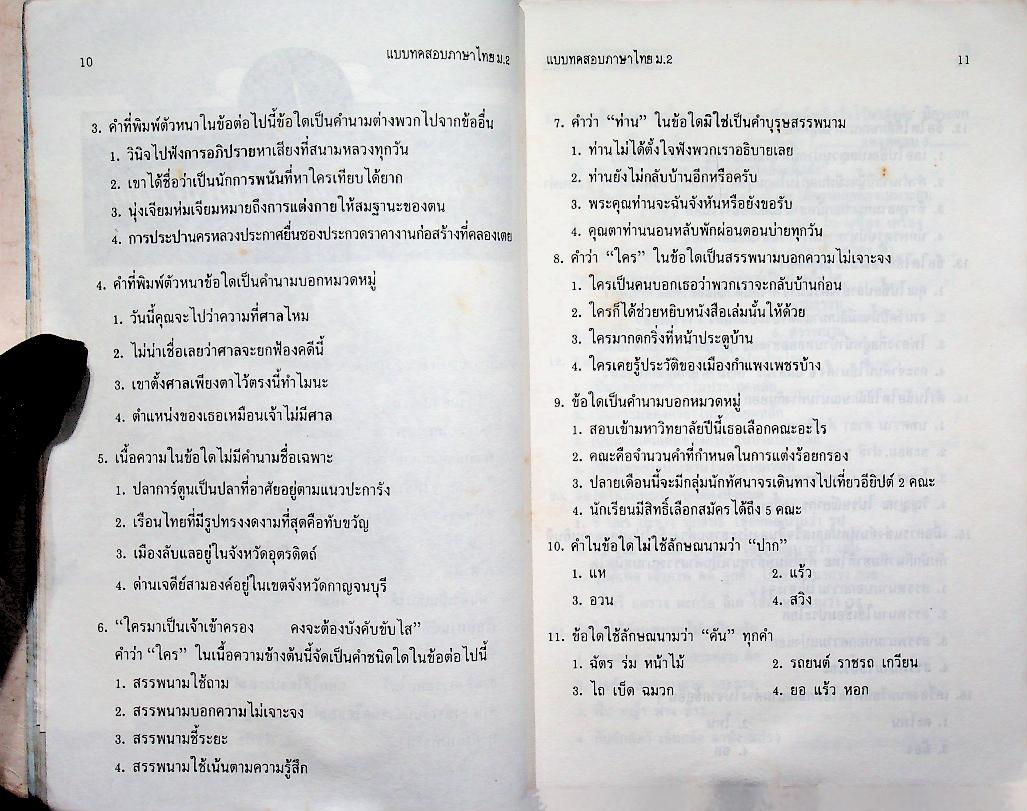 10
แบบทดสอบภาษาไทย ม.2
3. คำที่พิมพ์ตัวหนาในข้อต่อไปนี้ข้อใดเป็นคำนามต่างพวกไปจากข้ออื่น
1. วินิจไปฟังการอภิปรายหาเสียงที่สนามหลวงทุกวัน
2. เขาได้ชื่อว่าเป็นนักการพนันที่หาใครเทียบได้ยาก
3. นุ่งเจียมห่มเจียมหมายถึงการแต่งกายให้สมฐานะของตน
4. การประปานครหลวงประกาศยื่นซองประกวดราคางานก่อสร้างที่คลองเตย
4. คำที่พิมพ์ตัวหนาข้อใดเป็นคำนามบอกหมวดหมู่
1. วันนี้คุณจะไปว่าความที่ศาลไหม
2. ไม่น่าเชื่อเลยว่าศาลจะยกฟ้องคดีนี้
3. เขาตั้งศาลเพียงตาไว้ตรงนี้ทำไมนะ
4. ตำแหน่งของเธอเหมือนเจ้าไม่มีศาล
5. เนื้อความในข้อใดไม่มีคำนามชื่อเฉพาะ
1. ปลาการ์ตูนเป็นปลาที่อาศัยอยู่ตามแนวปะการัง
2. เรือนไทยที่มีรูปทรงงดงามที่สุดคือทับขวัญ
3. เมืองลับแลอยู่ในจังหวัดอุตรดิตถ์
4. ด่านเจดีย์สามองค์อยู่ในเขตจังหวัดกาญจนบุรี
6. “ใครมาเป็นเจ้าเข้าครอง คงจะต้องบังคับขับไส”
คำว่า “ใคร” ในเนื้อความข้างต้นนี้จัดเป็นคำชนิดใดในข้อต่อไปนี้
1. สรรพนามใช้ถาม
2. สรรพนามบอกความไม่เจาะจง
3. สรรพนามชี้ระยะ
4. สรรพนามใช้เน้นตามความรู้สึก
แบบทดสอบภาษาไทย ม.2
11
7. คำว่า “ท่าน” ในข้อใดมิใช่เป็นคำบุรุษสรรพนาม
1. ท่านไม่ได้ตั้งใจฟังพวกเราอธิบายเลย
2. ท่านยังไม่กลับบ้านอีกหรือครับ
3. พระคุณท่านจะฉันจังหันหรือยังขอรับ
4. คุณตาท่านนอนหลับพักผ่อนตอนบ่ายทุกวัน
8. คำว่า “ใคร” ในข้อใดเป็นสรรพนามบอกความไม่เจาะจง
1. ใครเป็นคนบอกเธอว่าพวกเราจะกลับบ้านก่อน
2. ใครก็ได้ช่วยหยิบหนังสือเล่มนั้นให้ด้วย
3. ใครมากดกริ่งที่หน้าประตูบ้าน
4. ใครเคยรู้ประวัติของเมืองกำแพงเพชรบ้าง
9. ข้อใดเป็นคำนามบอกหมวดหมู่
1. สอบเข้ามหาวิทยาลัยปีนี้เธอเลือกคณะอะไร
2. คณะคือจำนวนคำที่กำหนดในการแต่งร้อยกรอง
3. ปลายเดือนนี้จะมีกลุ่มนักทัศนาจรเดินทางไปเที่ยวอียิปต์ 2 คณะ
4. นักเรียนมีสิทธิ์เลือกสมัครได้ถึง 5 คณะ
10. คำในข้อใดไม่ใช้ลักษณนามว่า “ปาก”
1. แห 2. แร้ว
3. อวน 4. สวิง
11. ข้อใดใช้ลักษณนามว่า “คัน” ทุกคำ
1. ฉัตร ร่ม หน้าไม้ 2. รถยนต์ ราชรถ เกวียน
3. ไถ เบ็ด ฉมวก 4. ยอ แร้ว หอก